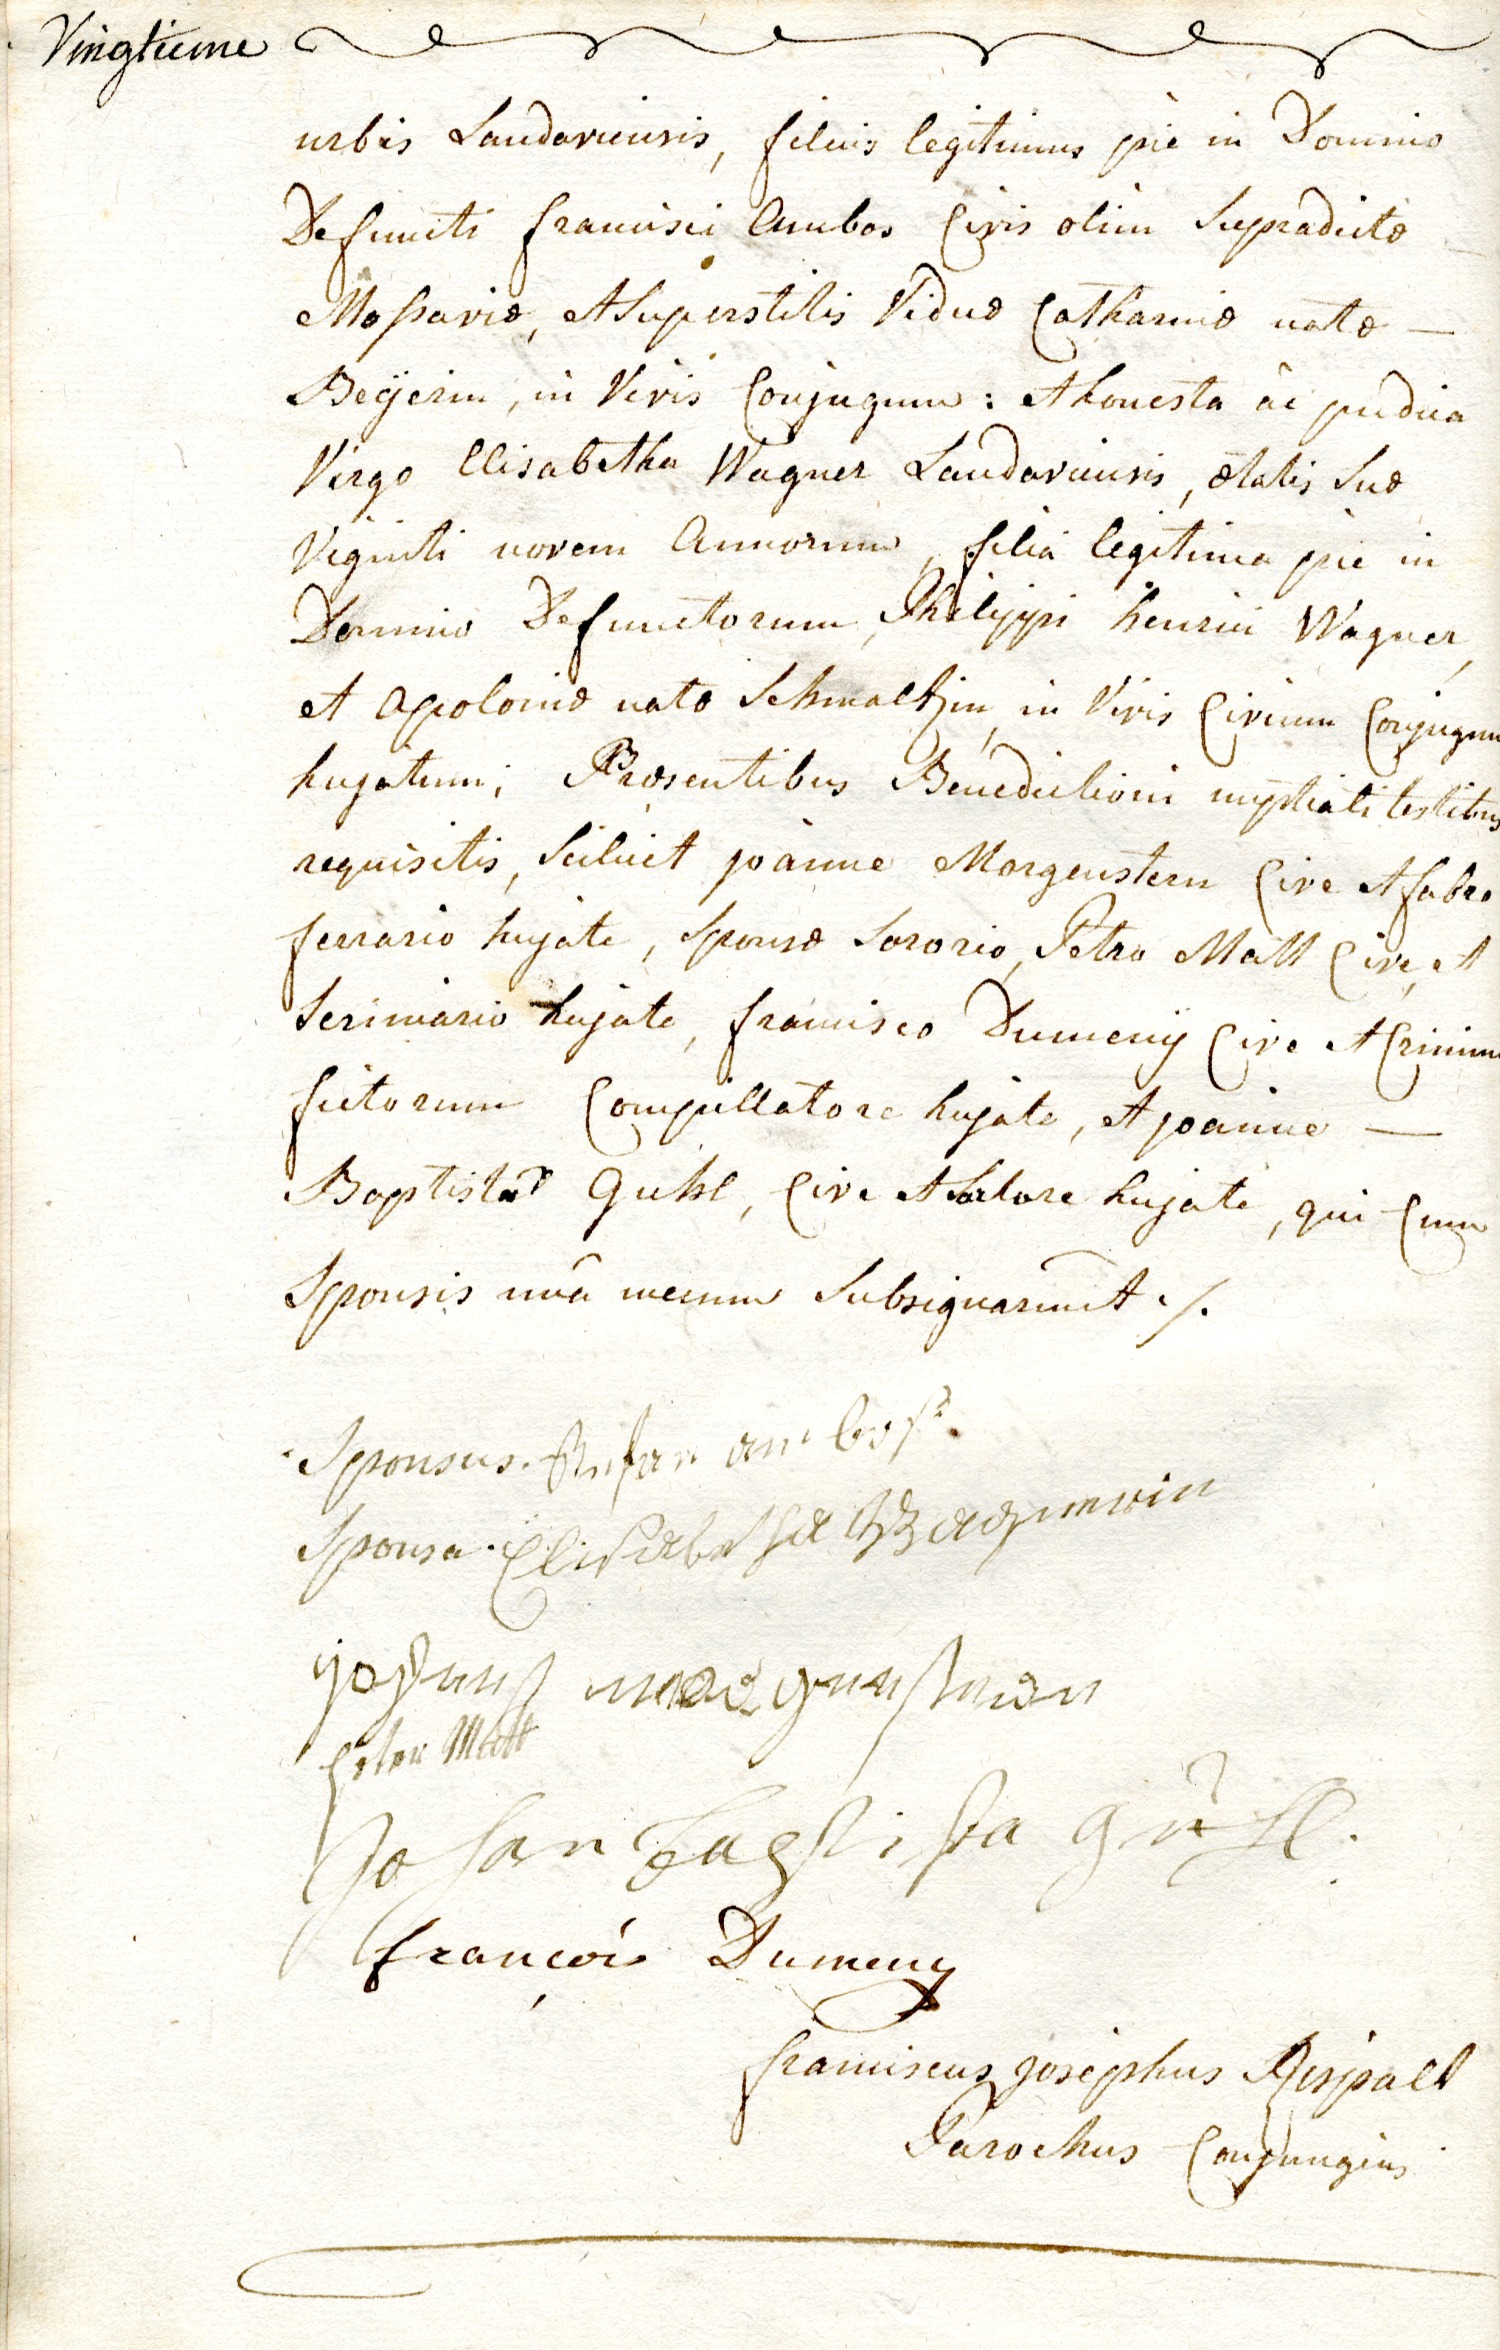 Vingtieme
urbis Landaviensis, filius legitimus piè in Domino
Defuncti francisci Ambos Civis olim Supradictæ
Mossaviæ, et Superstitis Viduæ Catharinæ natæ —
Beÿerin, in Vivis Conjugum : et honesta ac pudica
Virgo Elisabetha Wagner Landaviensis, ætatis Suæ
Viginti novem Annorum, filia legitima piè in
Domino Defunctorum, Philippi henrici Wagner,
et Apoloniæ natæ Schmaltzin, in Vivis Civium Conjugum
hujatum; Præsentibus Benedictioni nuptiali testibus
requisitis, Scilicet joanne Morgenstern Cive et fabro
ferrario hujate, Sponsæ Sororio, Petro Matt Cive, et
Scriniario hujate, francisco Dumenÿ Cive et Crinium
fictorum Compillatore hujate, et joanne —
Baptista Guhl, Cive et Sartore hujate, qui Cum
Sponsis unâ mecum Subsignarunt ./.
Sponsus. Stefan ambos
Sponsa. Elisabetha Wagnerin
johannes morgenstern
Peter Matt
Johan Baptista Gühl.
françois Dumeny
franciscus josephus Rispalt
Parochus Conjungens